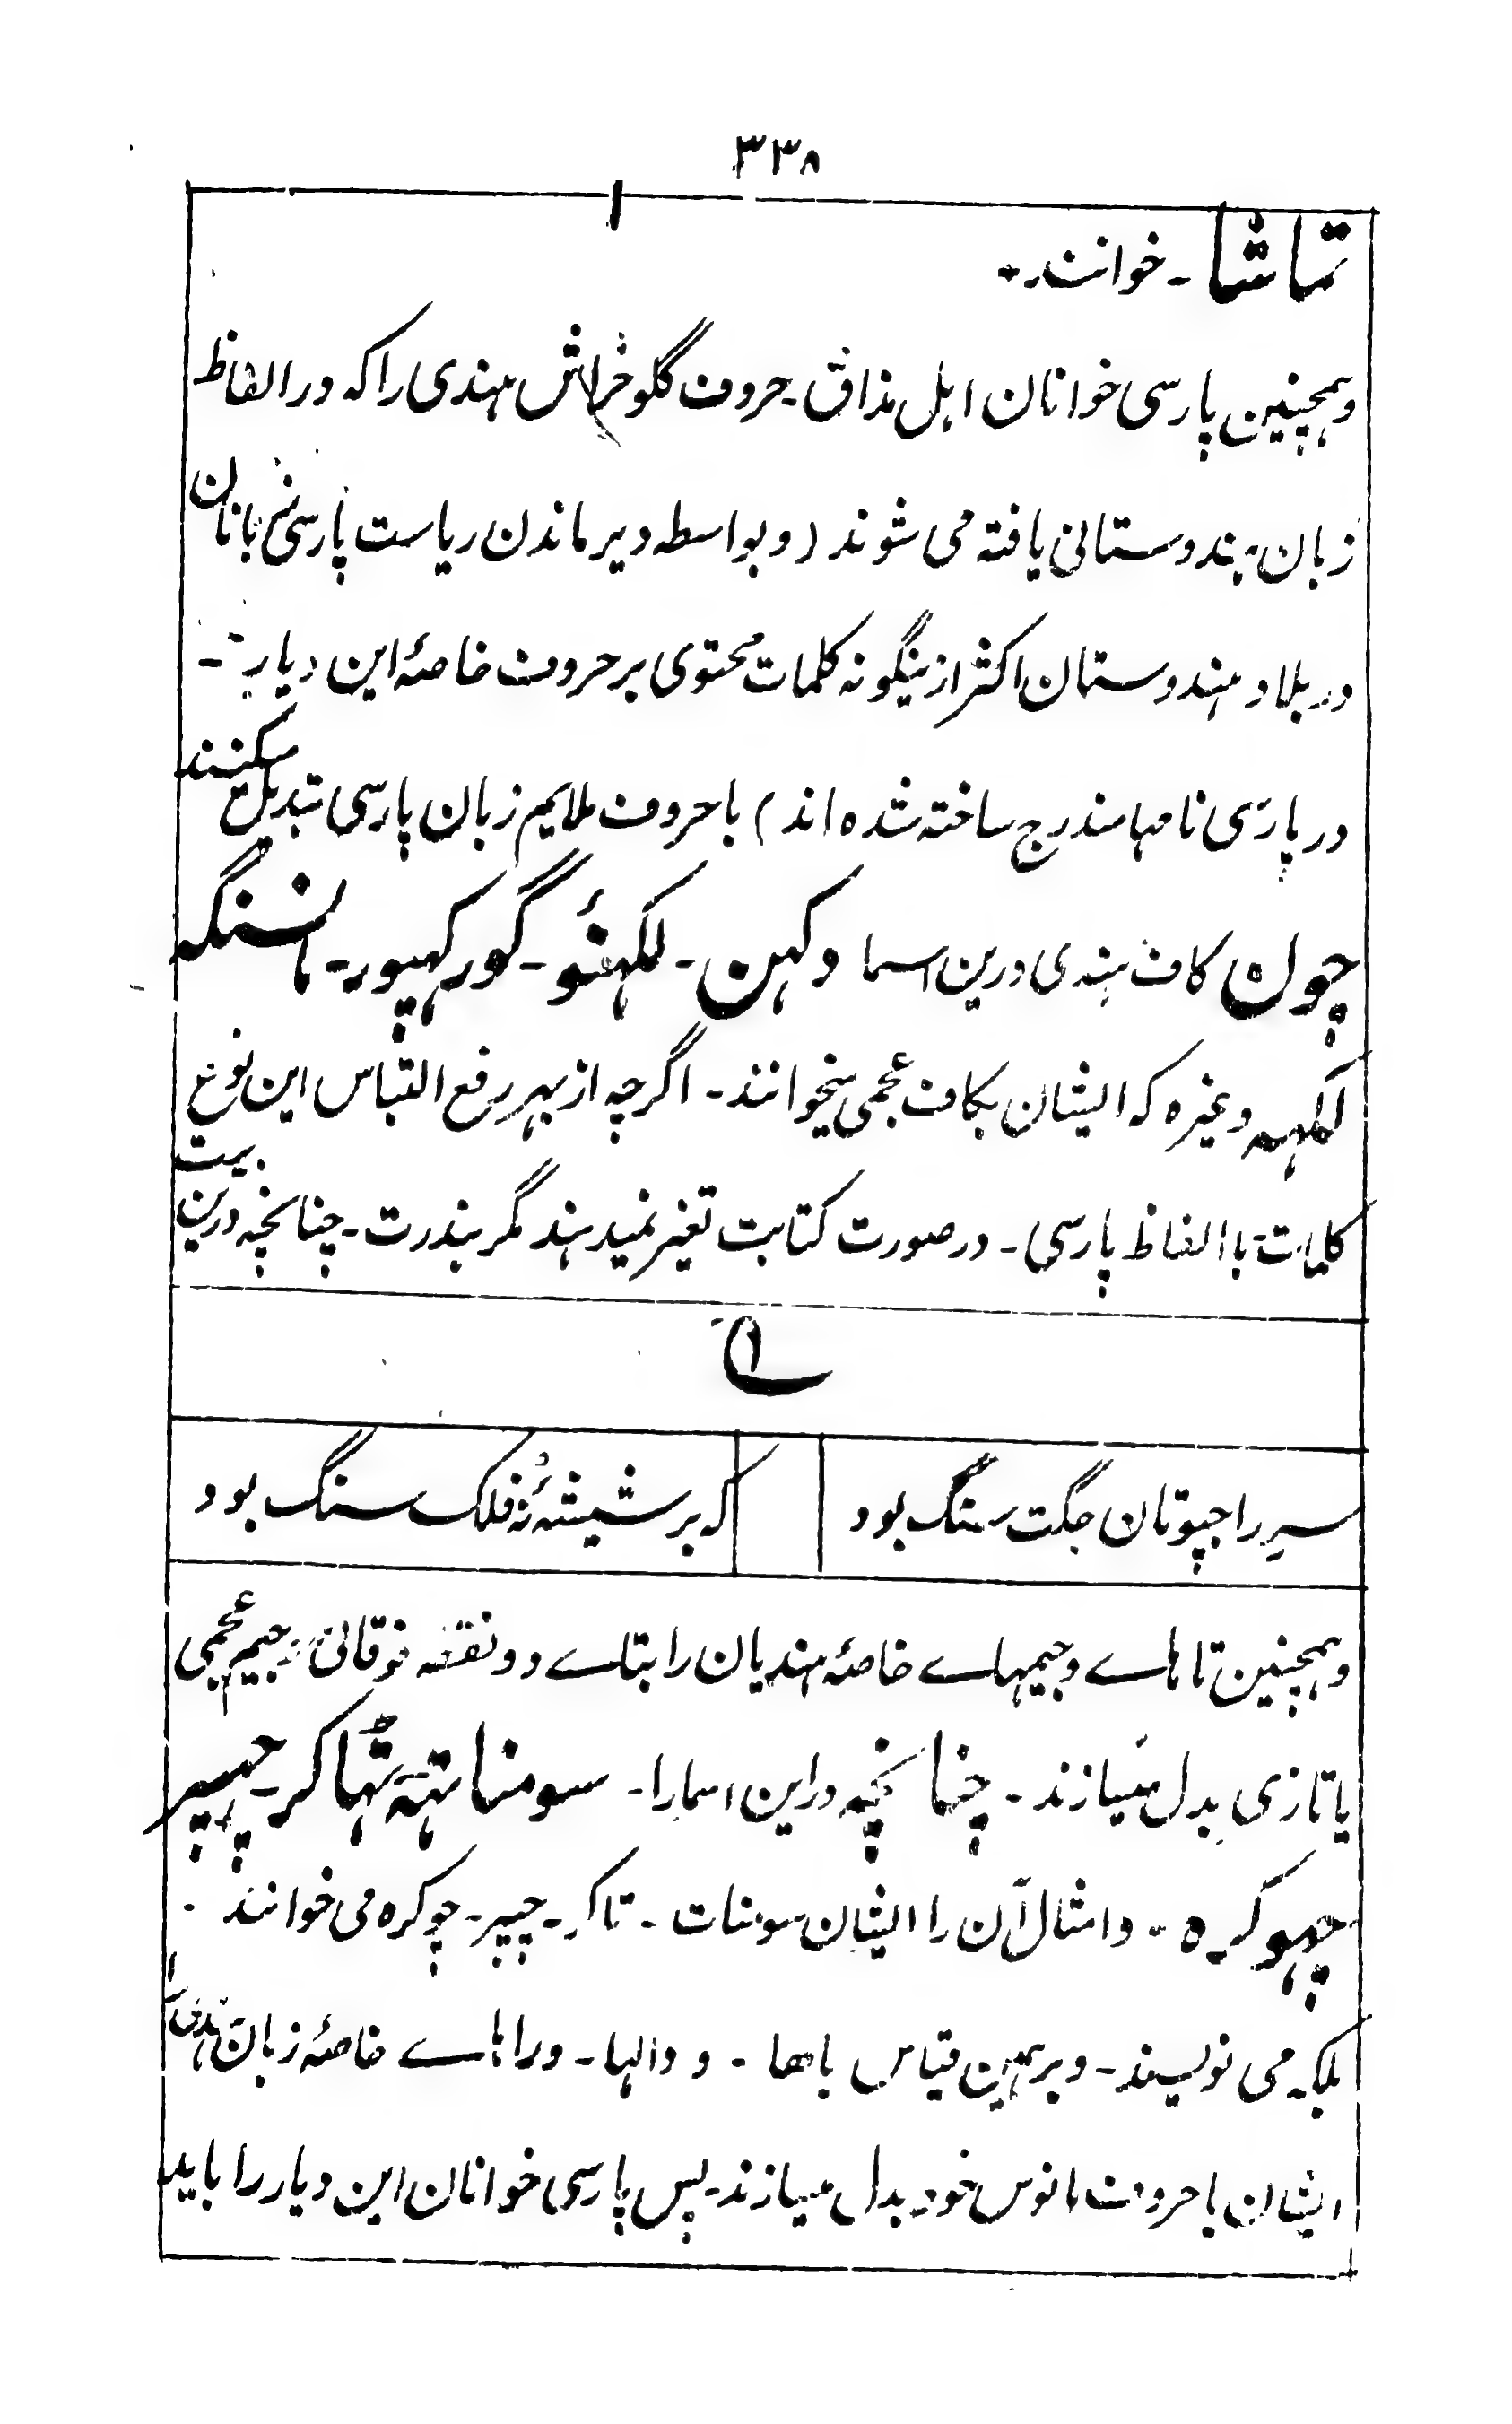 ۳۳۸
تماشا ـ خوانند ـ
وہمچنین پارسی خوانان اہل مذاق ـ حروف گلوخراش ہندی را کہ در الفاظ
زبان ہندوستانی یافتہ می شوند (و بواسطہ دیر ماندن ریاست پارسی زبانان
در بلاد ہندوستان اکثر ازینگونہ کلمات محتوی بر حروف خاصۂ این دیار ـ
در پارسی نامہا مندرج ساختہ شدہ اند) با حروف ملایم زبان پارسی تبدیل میکنند
چون کاف ہندی درین اسما دکہن ـ لکہنؤ ـ گورکہپور ـ مانسنگہ
لکہہ وغیرہ کہ ایشان بکاف عجمی میخوانند ـ اگرچہ از بہر رفع التباس این نوع
کلمات با الفاظ پارسی ـ در صورت کتابت تغیر نمیدہند مگر بندرت ـ چنانچہ درین بیت
سرِ راجپوتان جگت سنگ بود
کہ بر شیشۂ نُہ فلک سنگ بود
وہمچنین تاہاے وجیمہاے خاصۂ ہندیان را بتاے دو نقطہ فوقانی وجیم عجمی
یا تازی بدل میسازند ـ چنانچہ در این اسما را ـ سومناتہہ ـ ٹہاکر ـ چہپر
چہوکرہ ـ وامثال آن را ایشان سومنات ـ تاکر ـ چپر ـ چوکرہ می خوانند
بلکہ می نویسند ـ وبرہمین قیاس باها ـ و دالہا ـ وراہاے خاصۂ زبان ہندی را
ایشان با حروف مانوس خود بدل میسازند ـ پس پارسی خوانان این دیار را باید